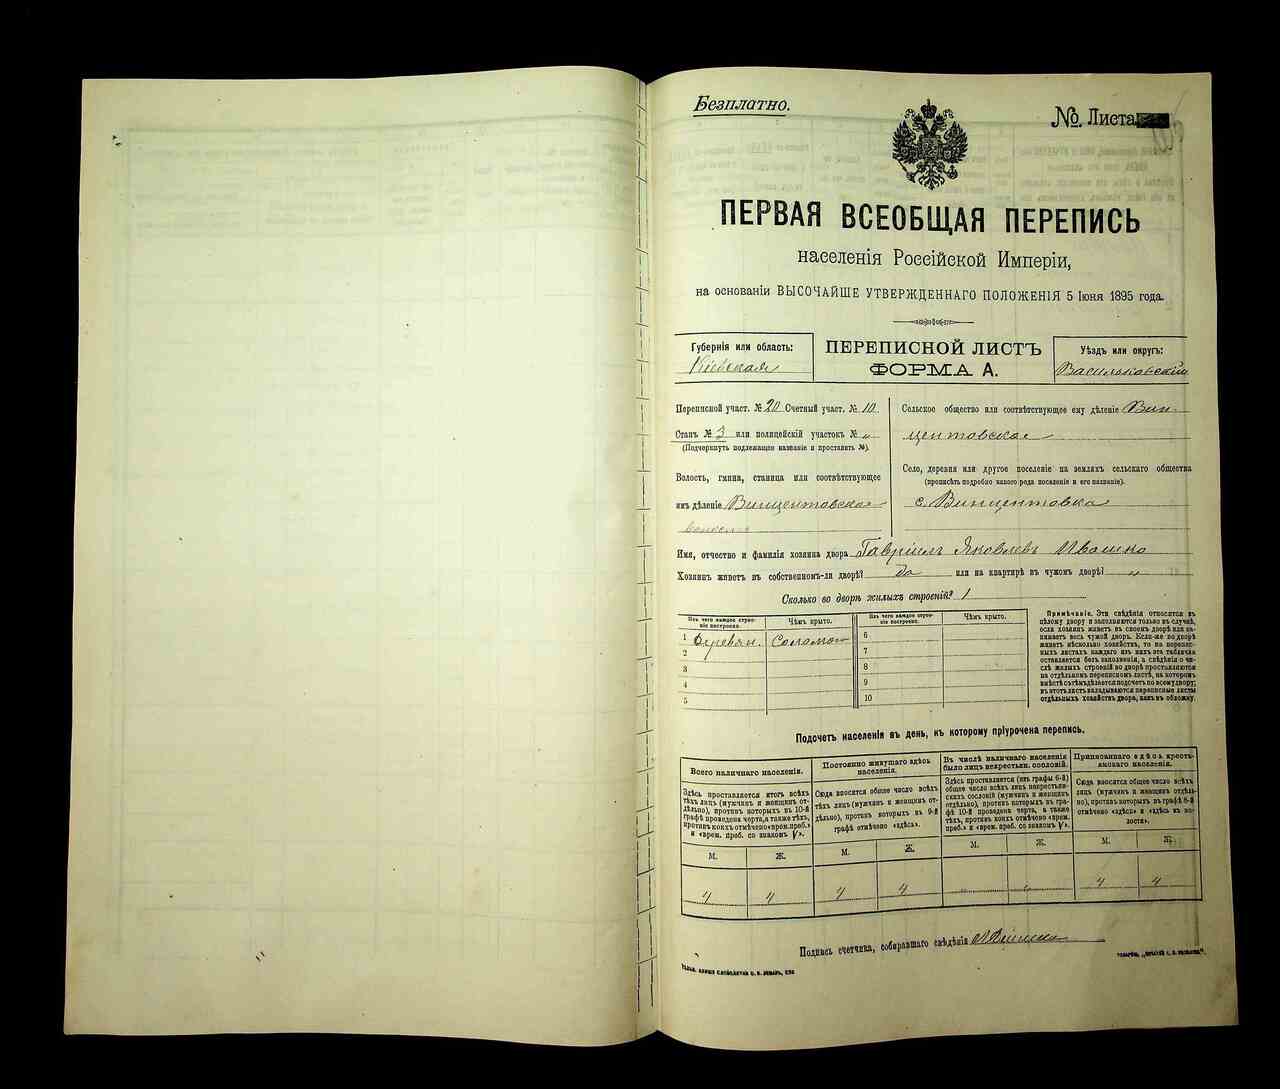 Безплатно.
№ Листа
ПЕРВАЯ ВСЕОБЩАЯ ПЕРЕПИСЬ
населенія Россійской Имперіи,
на основаніи ВЫСОЧАЙШЕ УТВЕРЖДЕННАГО ПОЛОЖЕНІЯ 5 Іюня 1895 года.
Губернія или область:
Кіевская
ПЕРЕПИСНОЙ ЛИСТЪ
ФОРМА А.
Уѣздъ или округъ:
Васильковскій
Переписной участ. № 20 Счетный участ. № 10
Станъ № 3 или полицейскій участокъ № „
(Подчеркнуть подлежащее названіе и проставить №).
Волость, гмина, станица или соотвѣтствующее
имъ дѣленіе Винцентовская
волость
Сельское общество или соотвѣтствующее ему дѣленіе Вин-
центовское
Село, деревня или другое поселеніе на земляхъ сельскаго общества
(прописать подробно какого рода поселеніе и его названіе).
с. Винцентовка
Имя, отчество и фамилія хозяина двора Гавріилъ Яковлевъ Ивашко
Хозяинъ живетъ въ собственномъ-ли дворѣ? да или на квартирѣ въ чужом дворѣ? „
Сколько во дворѣ жилыхъ строеній? 1
Изъ чего каждое строе-
ніе построено.
Чѣмъ крыто.
Изъ чего каждое строе-
ніе построено.
Чѣмъ крыто.
1 Деревян. Соломой 6
2 7
3 8
4 9
5 10
Примѣчаніе. Эти свѣдѣнія относятся къ
цѣлому двору и заполняются только въ случаѣ,
если хозяинъ живетъ въ своемъ дворѣ или за-
нимаетъ весь чужой дворъ. Если-же во дворѣ
живетъ нѣсколько хозяйствъ, то на перепис-
ныхъ листахъ каждаго изъ нихъ эта табличка
оставляется безъ заполненія, а свѣдѣнія о чи-
слѣ жилыхъ строеній во дворѣ проставляются
на отдѣльномъ переписномъ листѣ, на которомъ
вмѣстѣ съ тѣмъ дѣлается подсчетъ по всему двору;
въ этотъ листъ вкладываются переписные листы
отдѣльныхъ хозяйствъ двора, какъ въ обложку.
Подсчетъ населенія въ день, къ которому пріурочена перепись.
Всего наличнаго населенія.
Здѣсь проставляется итогъ всѣхъ
тѣхъ лицъ (мужчинъ и женщинъ от-
дѣльно), противъ которыхъ въ 10-й
графѣ проведена черта, а также тѣхъ,
противъ коихъ отмѣчено «врем. преб.»
и «врем. преб. со знакомъ V».
Постоянно живущаго здѣсь
населенія.
Сюда вносится общее число всѣхъ
тѣхъ лицъ (мужчинъ и женщинъ от-
дѣльно), противъ которыхъ въ 9-й
графѣ отмѣчено «здѣсь».
Въ числѣ наличнаго населенія
было лицъ некрестьян. сословій.
Здѣсь проставляется (изъ графы 6-й)
общее число всѣхъ лицъ некрестьян-
скихъ сословій (мужчинъ и женщинъ
отдѣльно), противъ которыхъ въ гра-
фѣ 10-й проведена черта, а также
тѣхъ, противъ коихъ отмѣчено «врем.
преб.» и «врем. преб. со знакомъ V».
Приписаннаго здѣсь кресть-
янскаго населенія.
Сюда вносится общее число всѣхъ
лицъ (мужчинъ и женщинъ отдѣль-
но), противъ которыхъ въ графѣ 8-й
отмѣчено «здѣсь» и «здѣсь въ во-
лости».
М. Ж. М. Ж. М. Ж. М. Ж.
4 4 4 4 „ „ 4 4
Подпись счетчика, собиравшаго свѣдѣнія